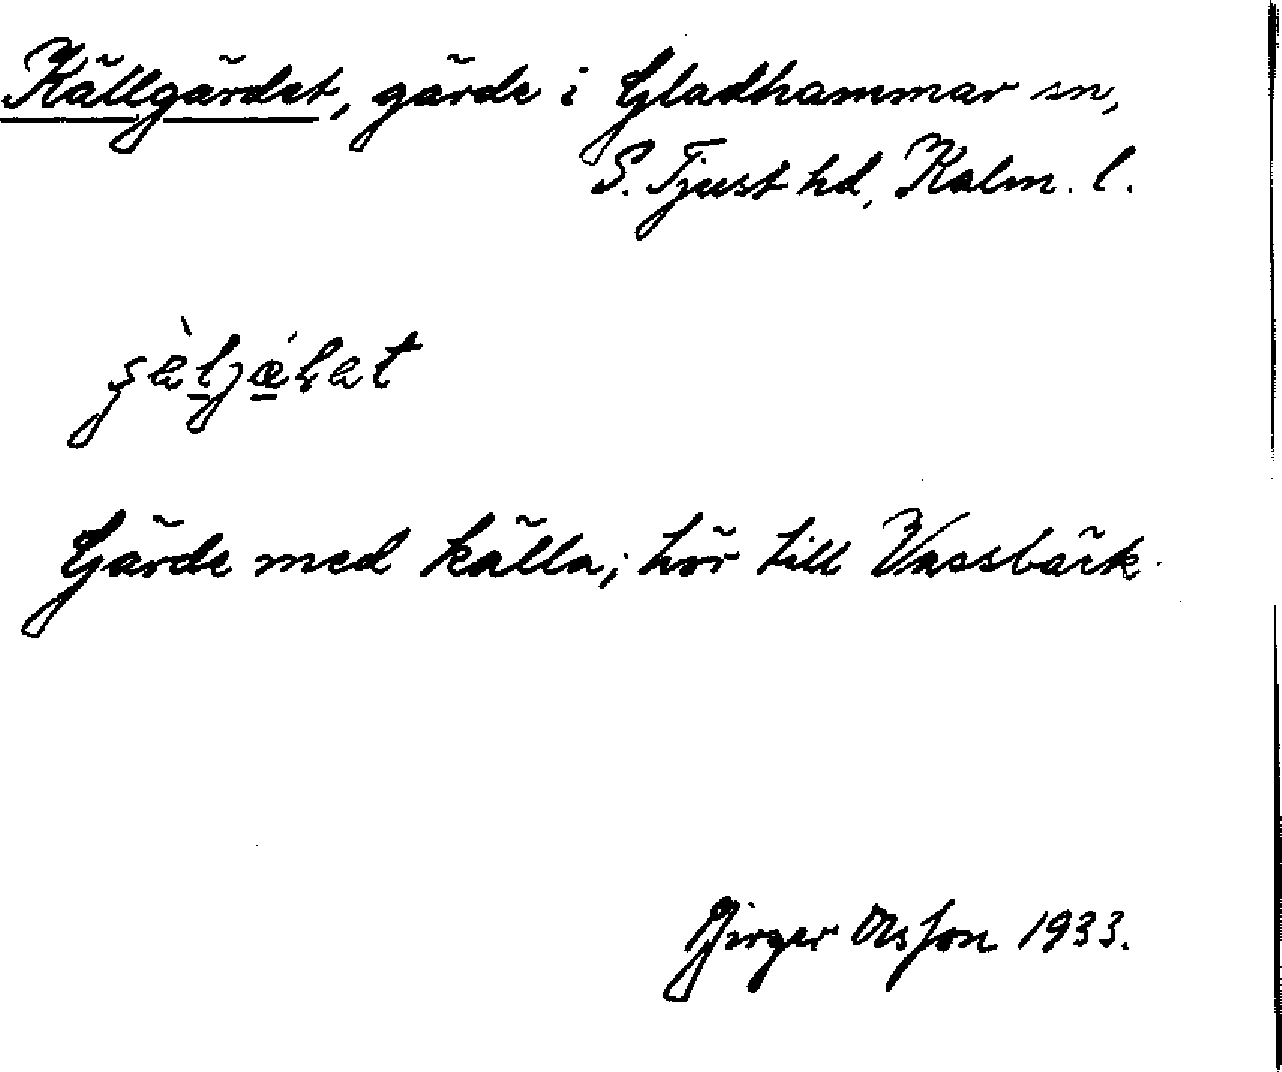 Källgärdet, gärde i Gladhammar sn,
S. Tjust hd, Kalm. l.
Gärde med källa; hör till Vassbäck.
Birger Olsson 1933.